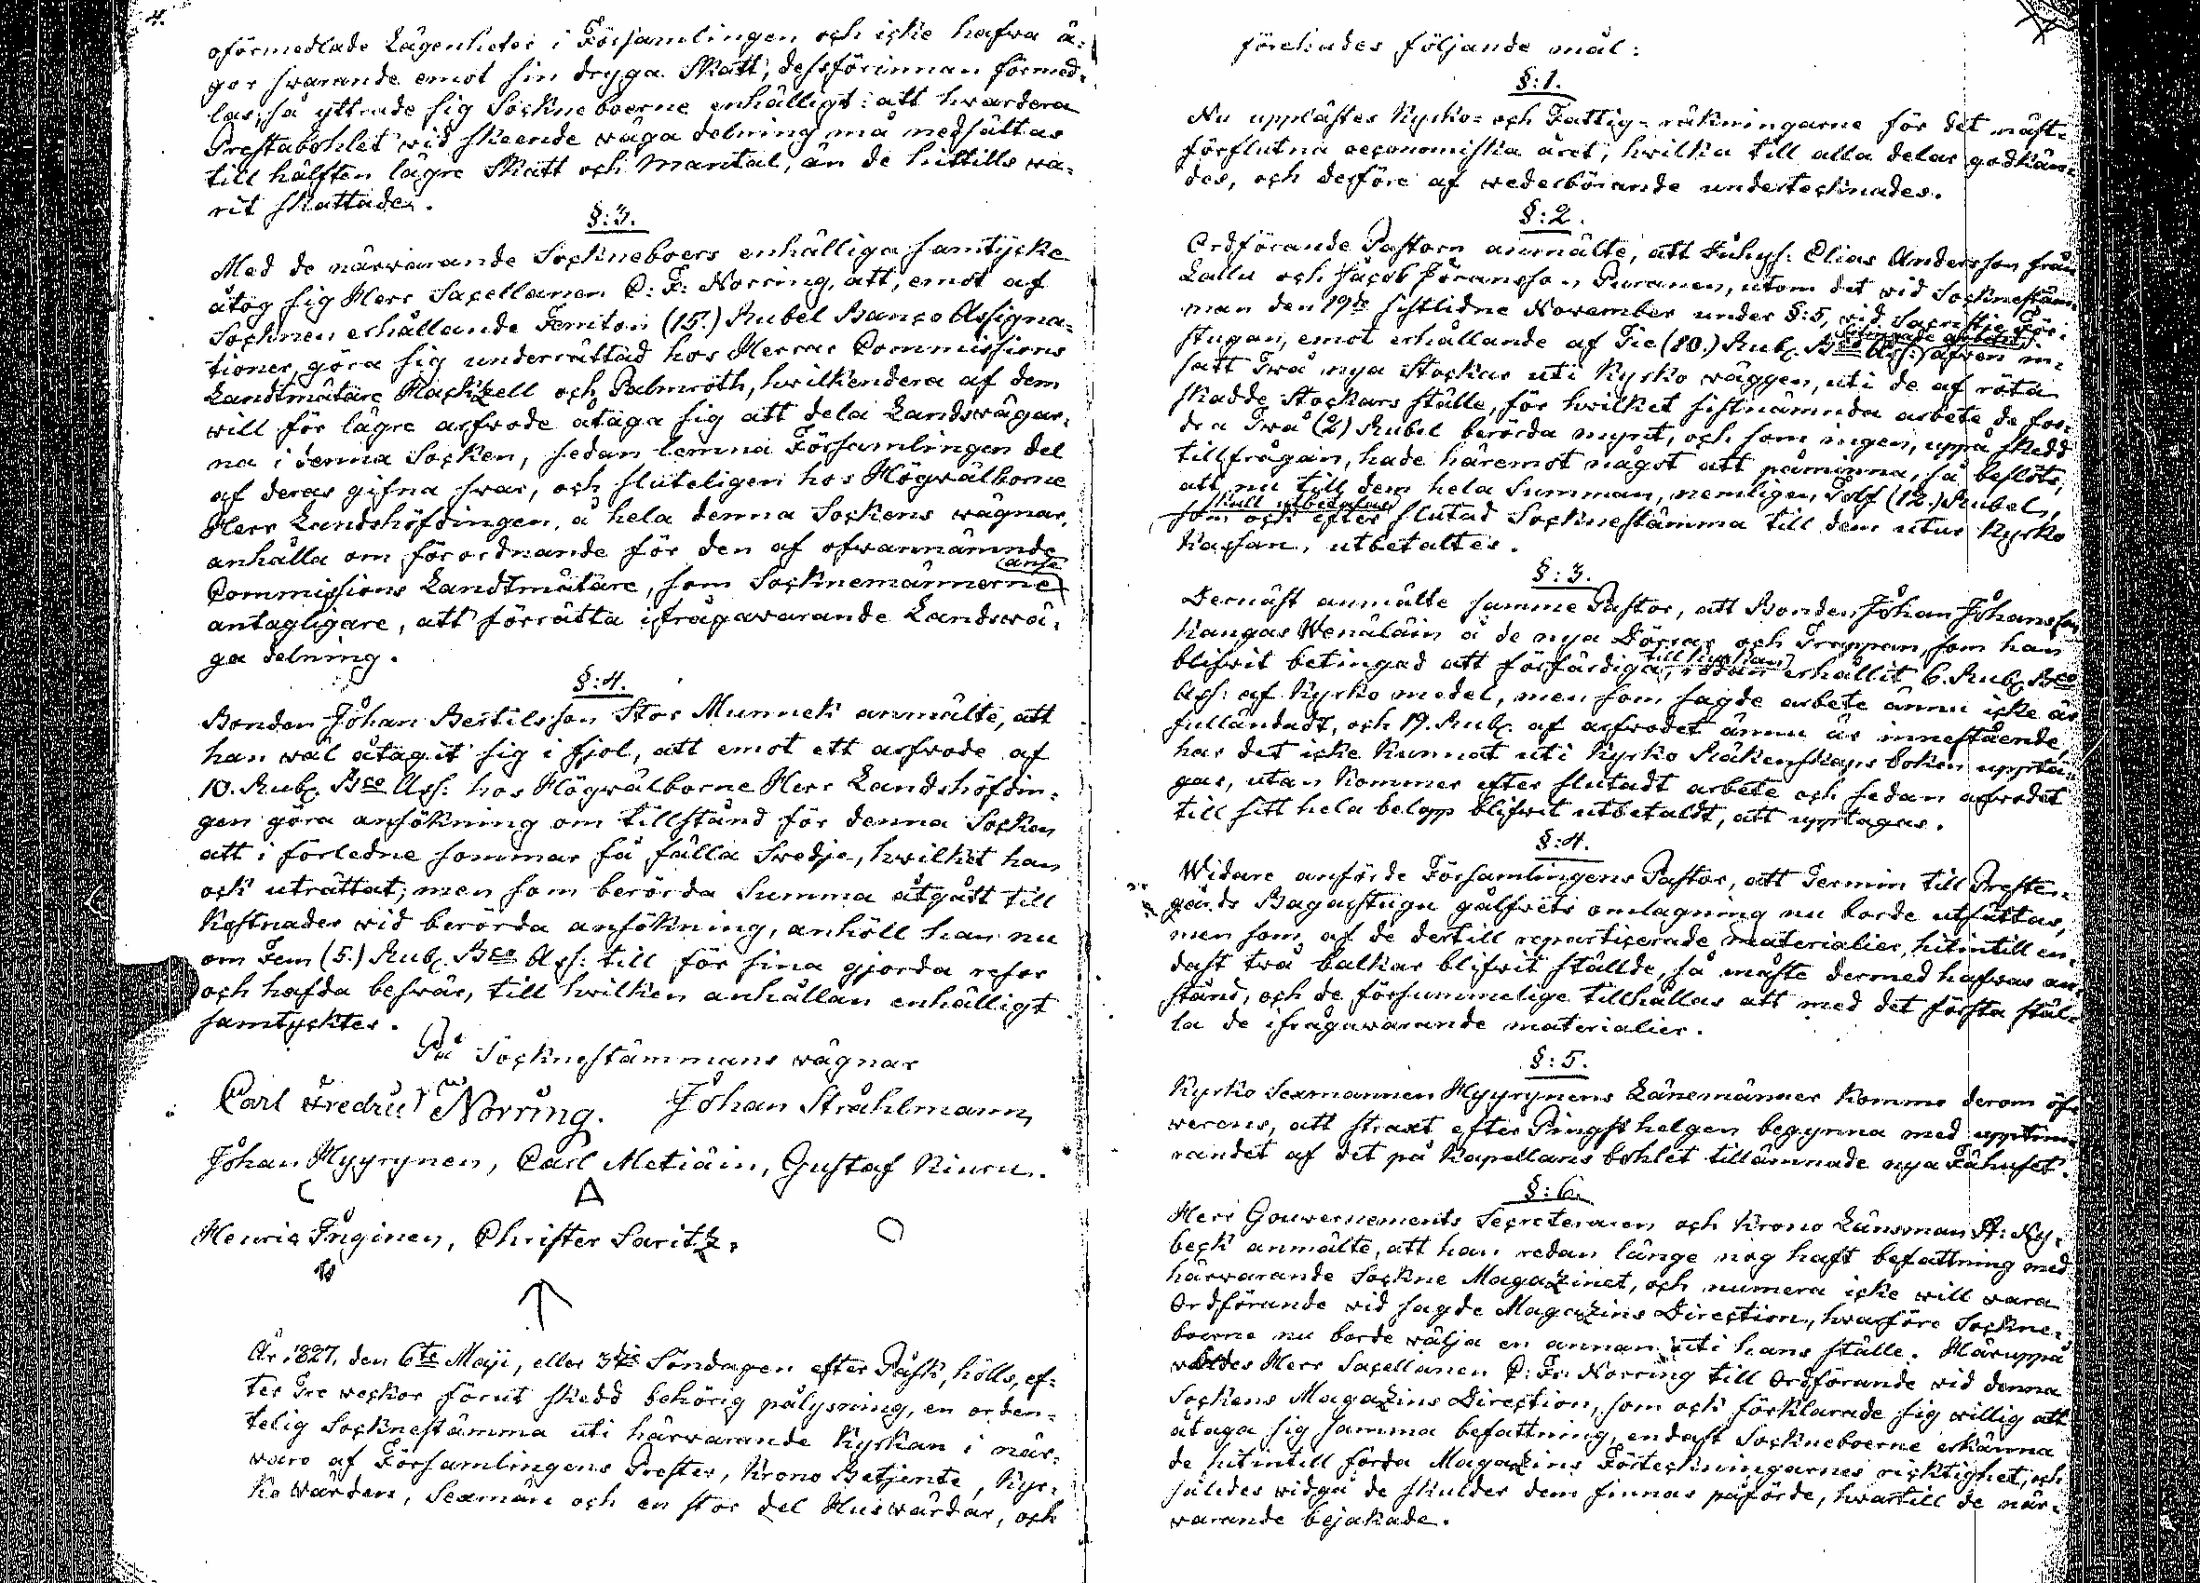 4.
oförmedlade Lägenheter i Församlingen och icke hafwa ä-
gor swarande emot sin dryga Skatt, dessförinnan förmed-
las, så yttrade sig Sockneboerne enhälligt: att hwardera
Prestabohlet wid skeende wäga delning må nedsättas
till hälften lägre Skatt och Mantal, än de hittills wa-
rit skattade.
§:3.
Med de närwarande Sockneboers enhälliga samtycke
åtog sig Herr Sacellanen C: F: Norring, att, emot af
Socknen erhållande Femton (15.) Rubel Banco Assigna-
tioner, göra sig underrättad hos Herrar Commissions
Landtmätare Hackzell och Palmroth, hwilkendera af dem
will för lägre arfwode åtaga sig att dela Landswägar-
na i denna Socken, sedan lemna Församlingen del
af deras gifna swar, och sluteligen hos Högwälborne
Herr Landshöfdingen, å hela denna Sockens wägnar,
anhålla om förordnande för den af ofwannämnde
Commissions Landtmätare, som Socknemännerne anse
antagligare, att förrätta ifrågawarande Landswä-
ga delning.
§:4.
Bonden Johan Bertilsson Stor Munnek anmälte, att
han wäl åtagit sig i fjol, att emot ett arfwode af
10. Rub. Bco Ass: hos Högwälborne Herr Landshöfdin-
gen göra ansökning om tillstånd för denna Socken
att i förledne sommar få fälla Swedje, hwilket han
ock uträttat; men som berörda Summa åtgått till
Kostnader wid berörda ansökning, anhöll han nu
om Fem (5.) Rub. Bco Ass: till för sina gjorda resor
och hafda beswär, till hwilken anhållan enhälligt
samtycktes.
På Socknestämmans wägnar
Carl Fredric Norring. Johan Stråhlmann,
Johan Hyyrynen, Carl Metiäin, Gustaf Niuru.
Henric Inginen, Christer Saritz.
År 1827, den 6te Maji, eller 3dje Söndagen efter Påsk, hölls, ef-
ter Tre weckor förut skedd behörig pålysning, en orden-
telig Socknestämma uti härwarande Kyrkan i när-
waro af Församlingens Prester, Krono Betjente, Kyr-
ko Wärden, Sexmän och en stor del Huswärdar, och
förehades följande mål:
§:1.
Nu upplästes Kyrko- och Fattig-räkningarne för det näst-
förflutna oeconomiska året, hwilka till alla delar godkän-
des, och derföre af wederbörande undertecknades.
§:2.
Ordförande Pastorn anmälte, att Inhys: Elias Andersson från
Lallu och Jacob Jöransson Puranen, utom det wid Socknestäm-
man den 19de sistlidne November under §:5, wid Sacrestie För-
stugan, emot erhållande af Tie (10.) Rub. Bco Ass: äfwen in-
satt Twå nya Stockar uti Kyrko wäggen, uti de af röta
skadde Stockars ställe, för hwilket sistnämnda arbete de for-
dra Twå (2) Rubel berörda mynt, och som ingen, uppå skedd
tillfrågan, hade häremot något att påminna, så beslöts,
att nu till dem hela Summan, nemligen Tolf (12.) Rubel,
skull utbetalas
som ock efter slutad Socknestämma till dem utur Kyrko
Kassan, utbetaltes.
§:3.
Dernäst anmälte samme Pastor, att Bonden Johan Johansson
Kangas Wenäläin å de nya Dörrar och Trappan, som han
blifwit betingad att förfärdiga till kyrkan, redan erhållit 6. Rub. Bco
Ass: af Kyrko medel, men som sagde arbete ännu icke är
fulländadt, och 19. Rub. af arfwodet ännu är innestående,
har det icke kunnat uti Kyrko Räkenskaps boken upptä-
gas, utan kommer efter slutadt arbete och sedan arfwodet
till sitt hela belopp blifwit utbetaldt, att upptagas.
§:4.
Widare anförde Församlingens Pastor, att Termin till Presten-
gårds Bagarstugu gålfwets omlagning nu borde utsättas,
men som af de dertill repartiserade materialier, hitintill en-
dast twå balkar blifwit ställde, så måste dermed hafwas an-
stånd, och de försummelige tillhållas att med det första stäl-
la de ifrågawarande materialier.
§:5.
Kyrko Sexmannen Hyyrynens Länemänner kommo derom öf-
werens, att straxt efter Pingst helgen begynna med upptim-
randet af det på Kapellans bohlet tillämnade nya Fähuset.
§:6.
Herr Gouvernements Secreteraren och Krono Länsman A: Ny-
beck anmälte, att han redan länge nog haft befattning med
härwarande Sockne Magazinet, och numera icke will wara
Ordförande wid sagde Magazins Direction, hwarföre Sockne-
boerne nu borde wälja en annan uti hans ställe. Häruppå
waldes Herr Sacellanen C: Fr: Norring till Ordförande wid denna
Sockens Magazins Direction, som ock förklarade sig willig att
åtaga sig samma befattning, endast Sockneboerne erkänna
de hitintill förda Magazins Förteckningarnes ricktighet, och
således widgå de skulder dem finnas påförde, hwartill de när-
warande bejakade.